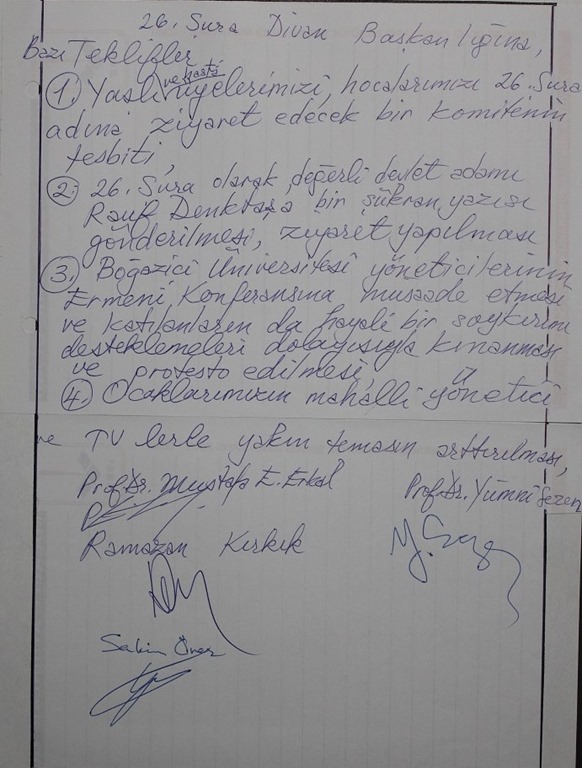 26. Şura Divan Başkanlığına,
Bazı Teklifler
1. Yaşlı ve hasta üyelerimizi, hocalarımızı 26. Şura
adına ziyaret edecek bir komitenin
tesbiti,
2. 26. Şura olarak değerli devlet adamı
Rauf Denktaşa bir şükran yazısı
gönderilmesi, ziyaret yapılması
3. Boğaziçi Üniversitesi yöneticilerinin
Ermeni Konferansına musaade etmesi
ve katılanların da hayali bir soykırımı
desteklemeleri dolayısıyla kınanması
ve protesto edilmesi,
4. Ocaklarımızın mahalli yönetici
ve TV lerle yakın temasın arttırılması,
Prof. Dr. Mustafa E. Erkal
Prof. Dr. Yümni Sezen
Ramazan Kırkık
Sakin Öner